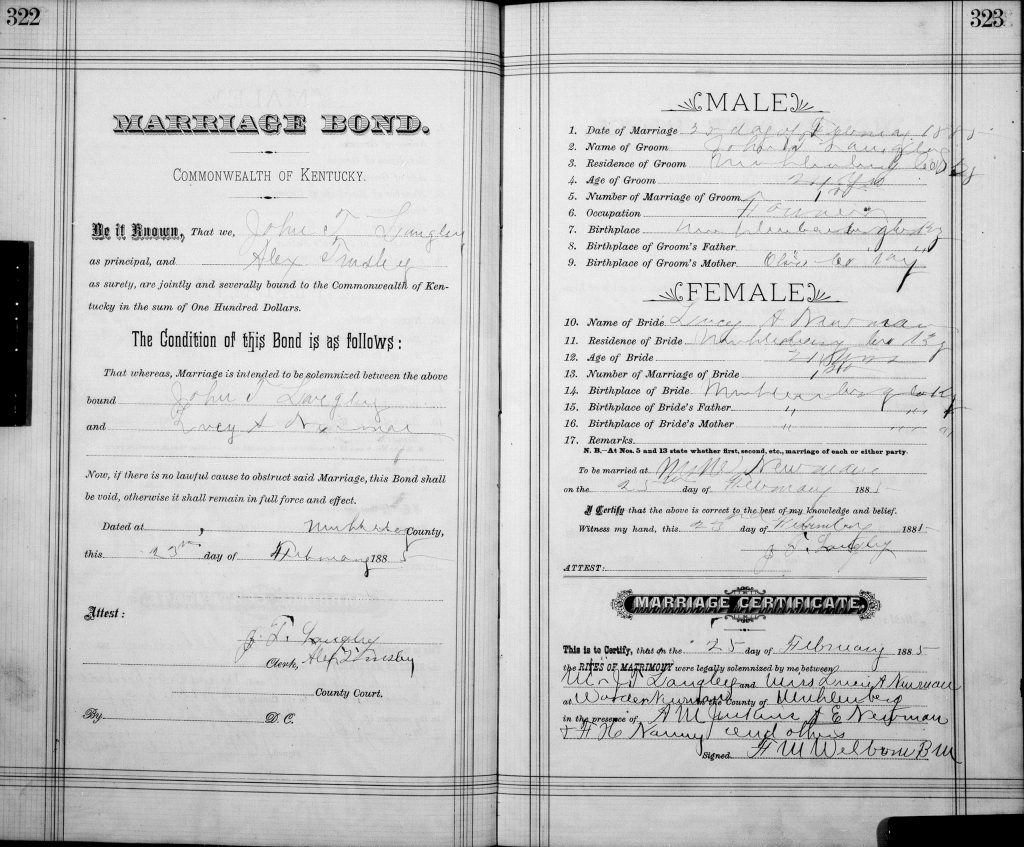 322
MARRIAGE BOND.
COMMONWEALTH OF KENTUCKY.
Be it Known, That we, John T Langley
as principal, and Alex Tinsley
as surety, are jointly and severally bound to the Commonwealth of Ken-
tucky in the sum of One Hundred Dollars.
The Condition of this Bond is as follows:
That whereas, Marriage is intended to be solemnized between the above
bound John T Langley
and Lucy A Newman
Now, if there is no lawful cause to obstruct said Marriage, this Bond shall
be void, otherwise it shall remain in full force and effect.
Dated at County,
this 23rd day of February 1885
Attest:
J. T. Langley
Clerk, Alex Tinsley
County Court.
By D. C.
323
MALE
1. Date of Marriage 25 day of February 1885
2. Name of Groom John T Langley
3. Residence of Groom Muhlenberg Co Ky
4. Age of Groom 24 yrs
5. Number of Marriage of Groom 1st
6. Occupation Farmer
7. Birthplace Muhlenberg Co Ky
8. Birthplace of Groom's Father " "
9. Birthplace of Groom's Mother Ohio Co Ky
FEMALE
10. Name of Bride Lucy A Newman
11. Residence of Bride Muhlenberg Co Ky
12. Age of Bride 21 yrs
13. Number of Marriage of Bride 1st
14. Birthplace of Bride Muhlenberg Co Ky
15. Birthplace of Bride's Father " "
16. Birthplace of Bride's Mother " "
17. Remarks.
N. B.—At Nos. 5 and 13 state whether first, second, etc., marriage of each or either party.
To be married at Newmans
on the 25 day of February 1885
I Certify that the above is correct to the best of my knowledge and belief.
Witness my hand, this 23rd day of February 1885
J. T. Langley
ATTEST:
MARRIAGE CERTIFICATE.
This is to Certify, that on the 25 day of February 1885
the RITES OF MATRIMONY were legally solemnized by me between
Mr J T Langley and Miss Lucie A Newman
at Warden Newmans in the County of Muhlenberg
in the presence of A M Jenkins J E Newman
& H Nanny and others
Signed H M Welborn B M